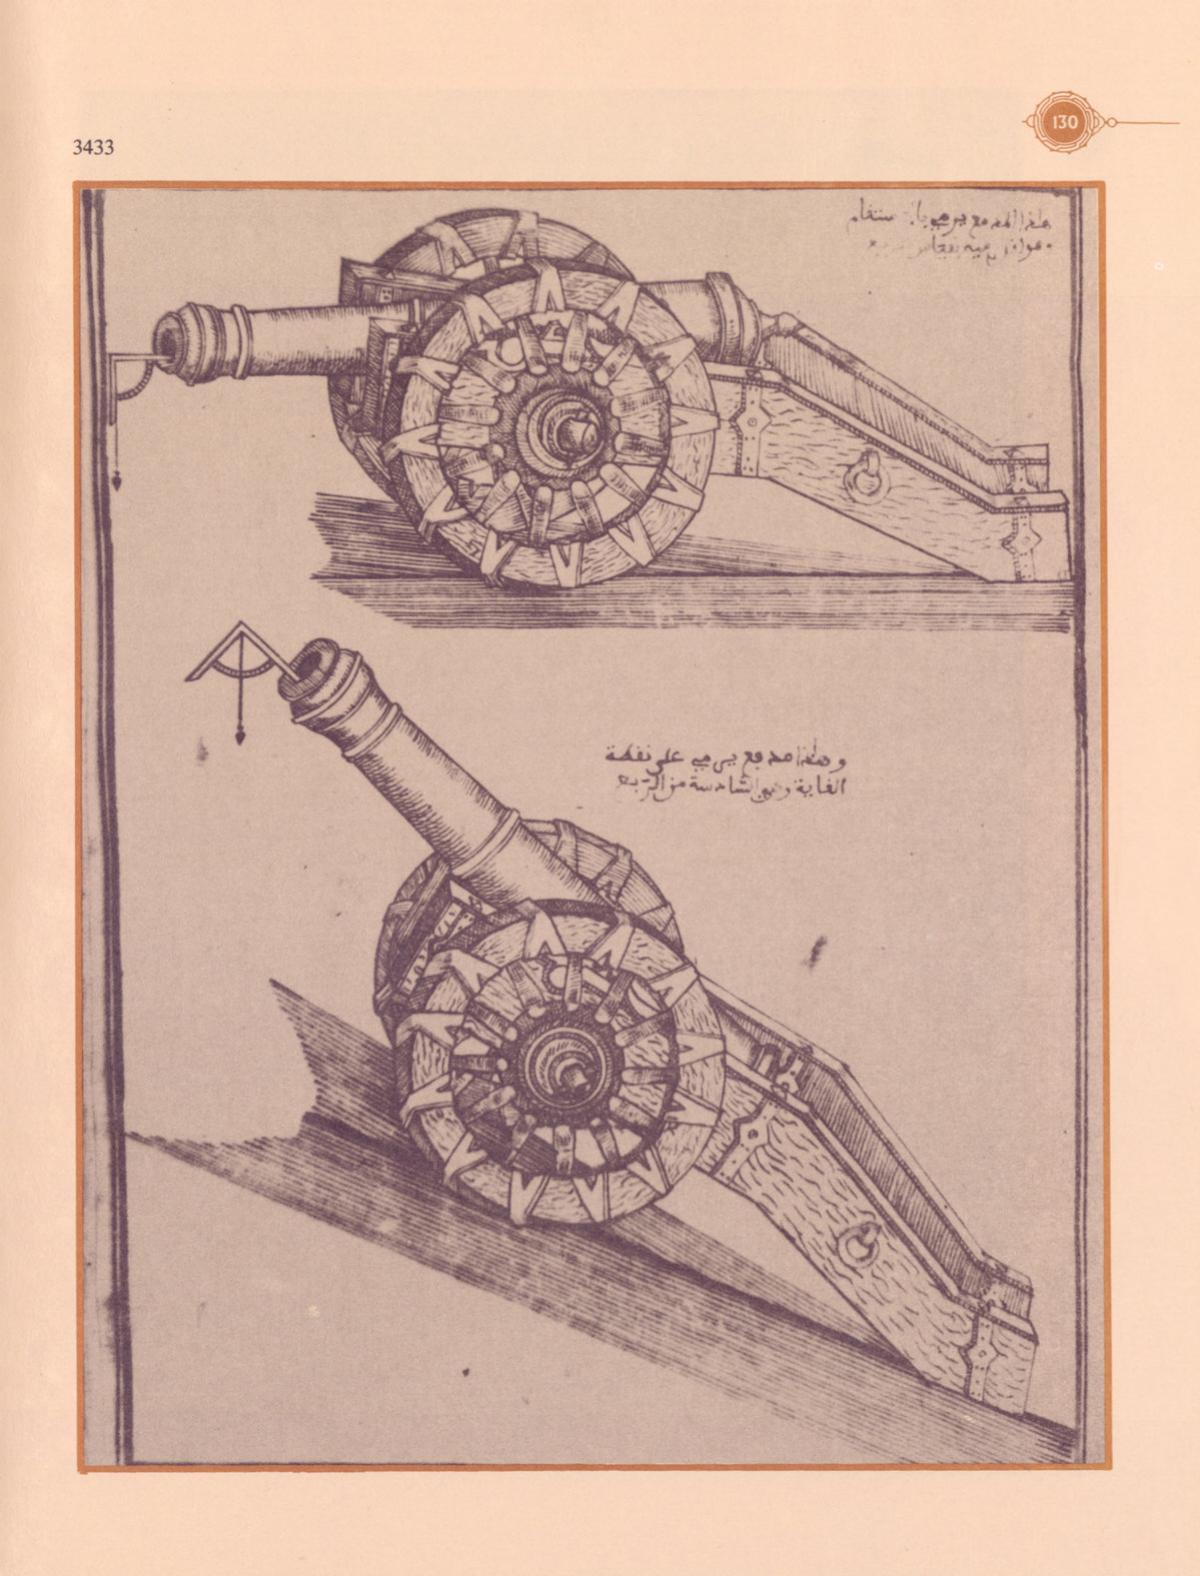 130
3433
هذا المدفع يرمي
وهذا مدفع يرمي على نقطة
الغاية وهي السادسة من الربع